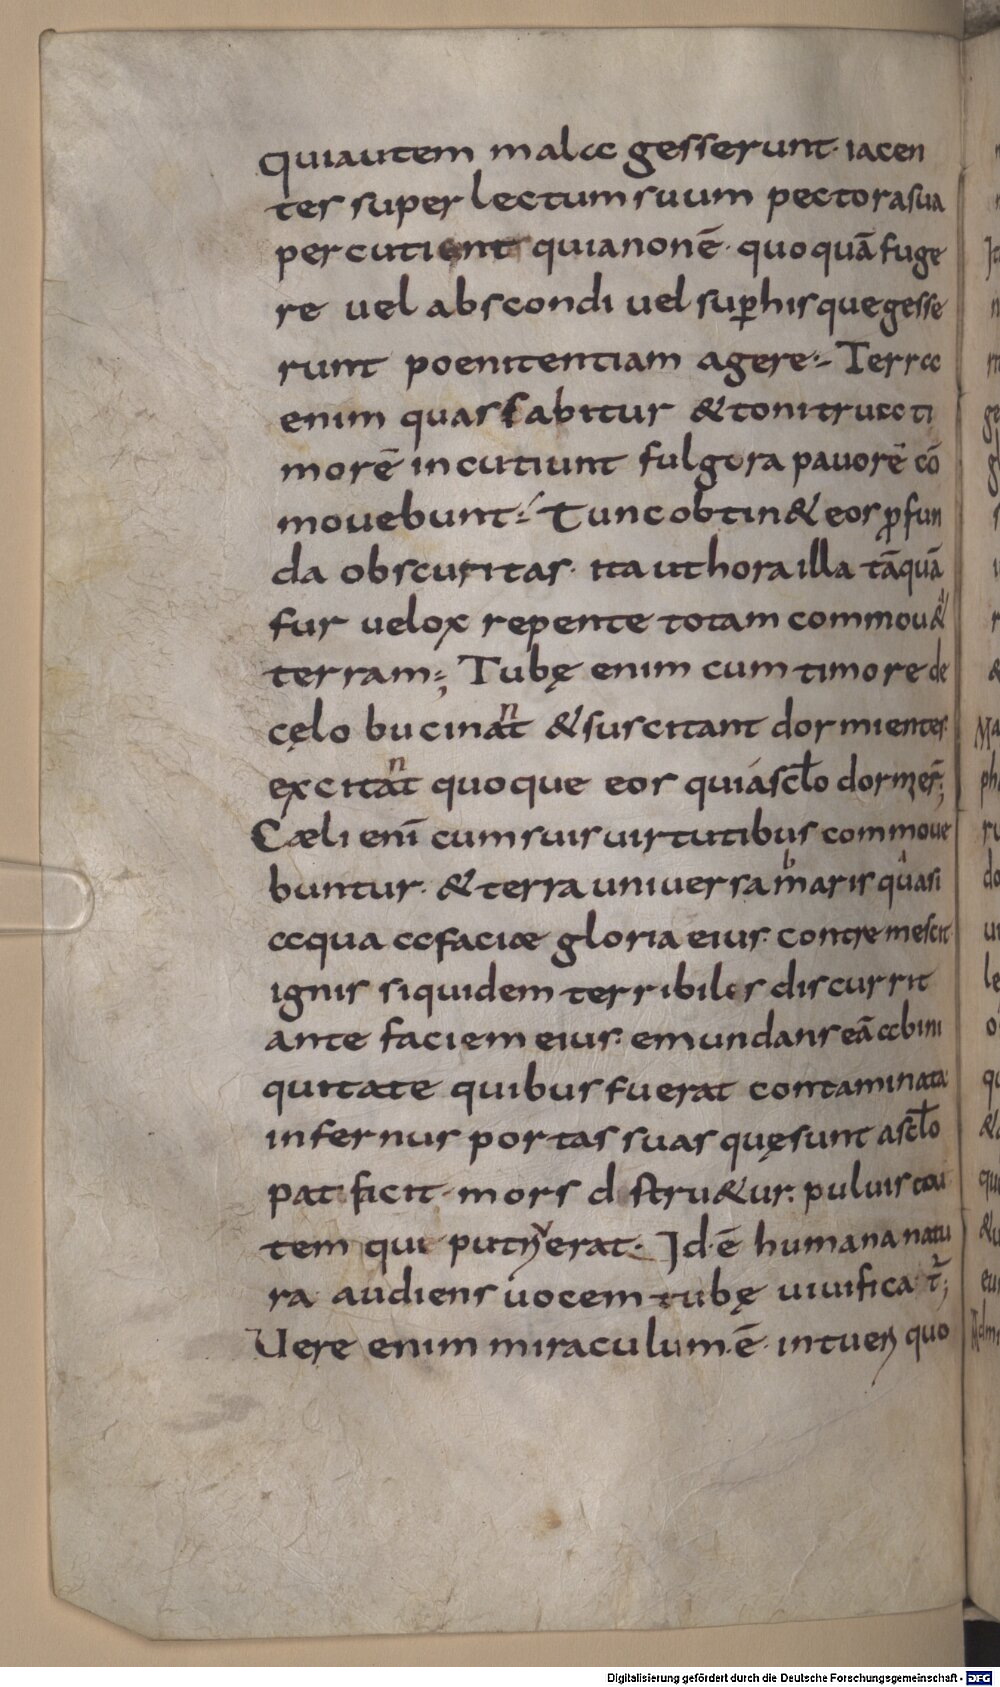 quiautem mala gesserunt· iacen
ter super lectum suum pectora sua
percutient quia non ē· quoquā fuge
re uel abscondi uel sup his que gesse
runt poenitentiam agere·:- Terra
enim quassabitur & tonitrua ti
morē incutiunt fulgora pauorē cō
mouebunt:- Tunc obtin& eos ꝓfun
da obscuritas· ita ut hora illa tāquā
fur uelox repente totam commou&
terram:, Tubę enim cum timore de
cęlo bucinant & suscitant dormientes·
excitant quoque eos qui a sclo dormier̄;
Cæli enī cum suis uirtutibus commoue
buntur· & terra uniuersa maris quasi
aqua a faciae gloria eius· contremescit
ignis siquidem terribiles discurrit
ante faciem eius· emundans eā ab ini
quitate quibus fuerat contaminata·
infernus portas suas quę sunt a sclo
patefacit· mors destru&ur· puluis
tem qui putruerat· Id·ē humana natu
ra audiens uocem tubę uiuificat̄;
Uere enim miraculum·ē· intueri quo
Digitalisierung gefördert durch die Deutsche Forschungsgemeinschaft - DFG